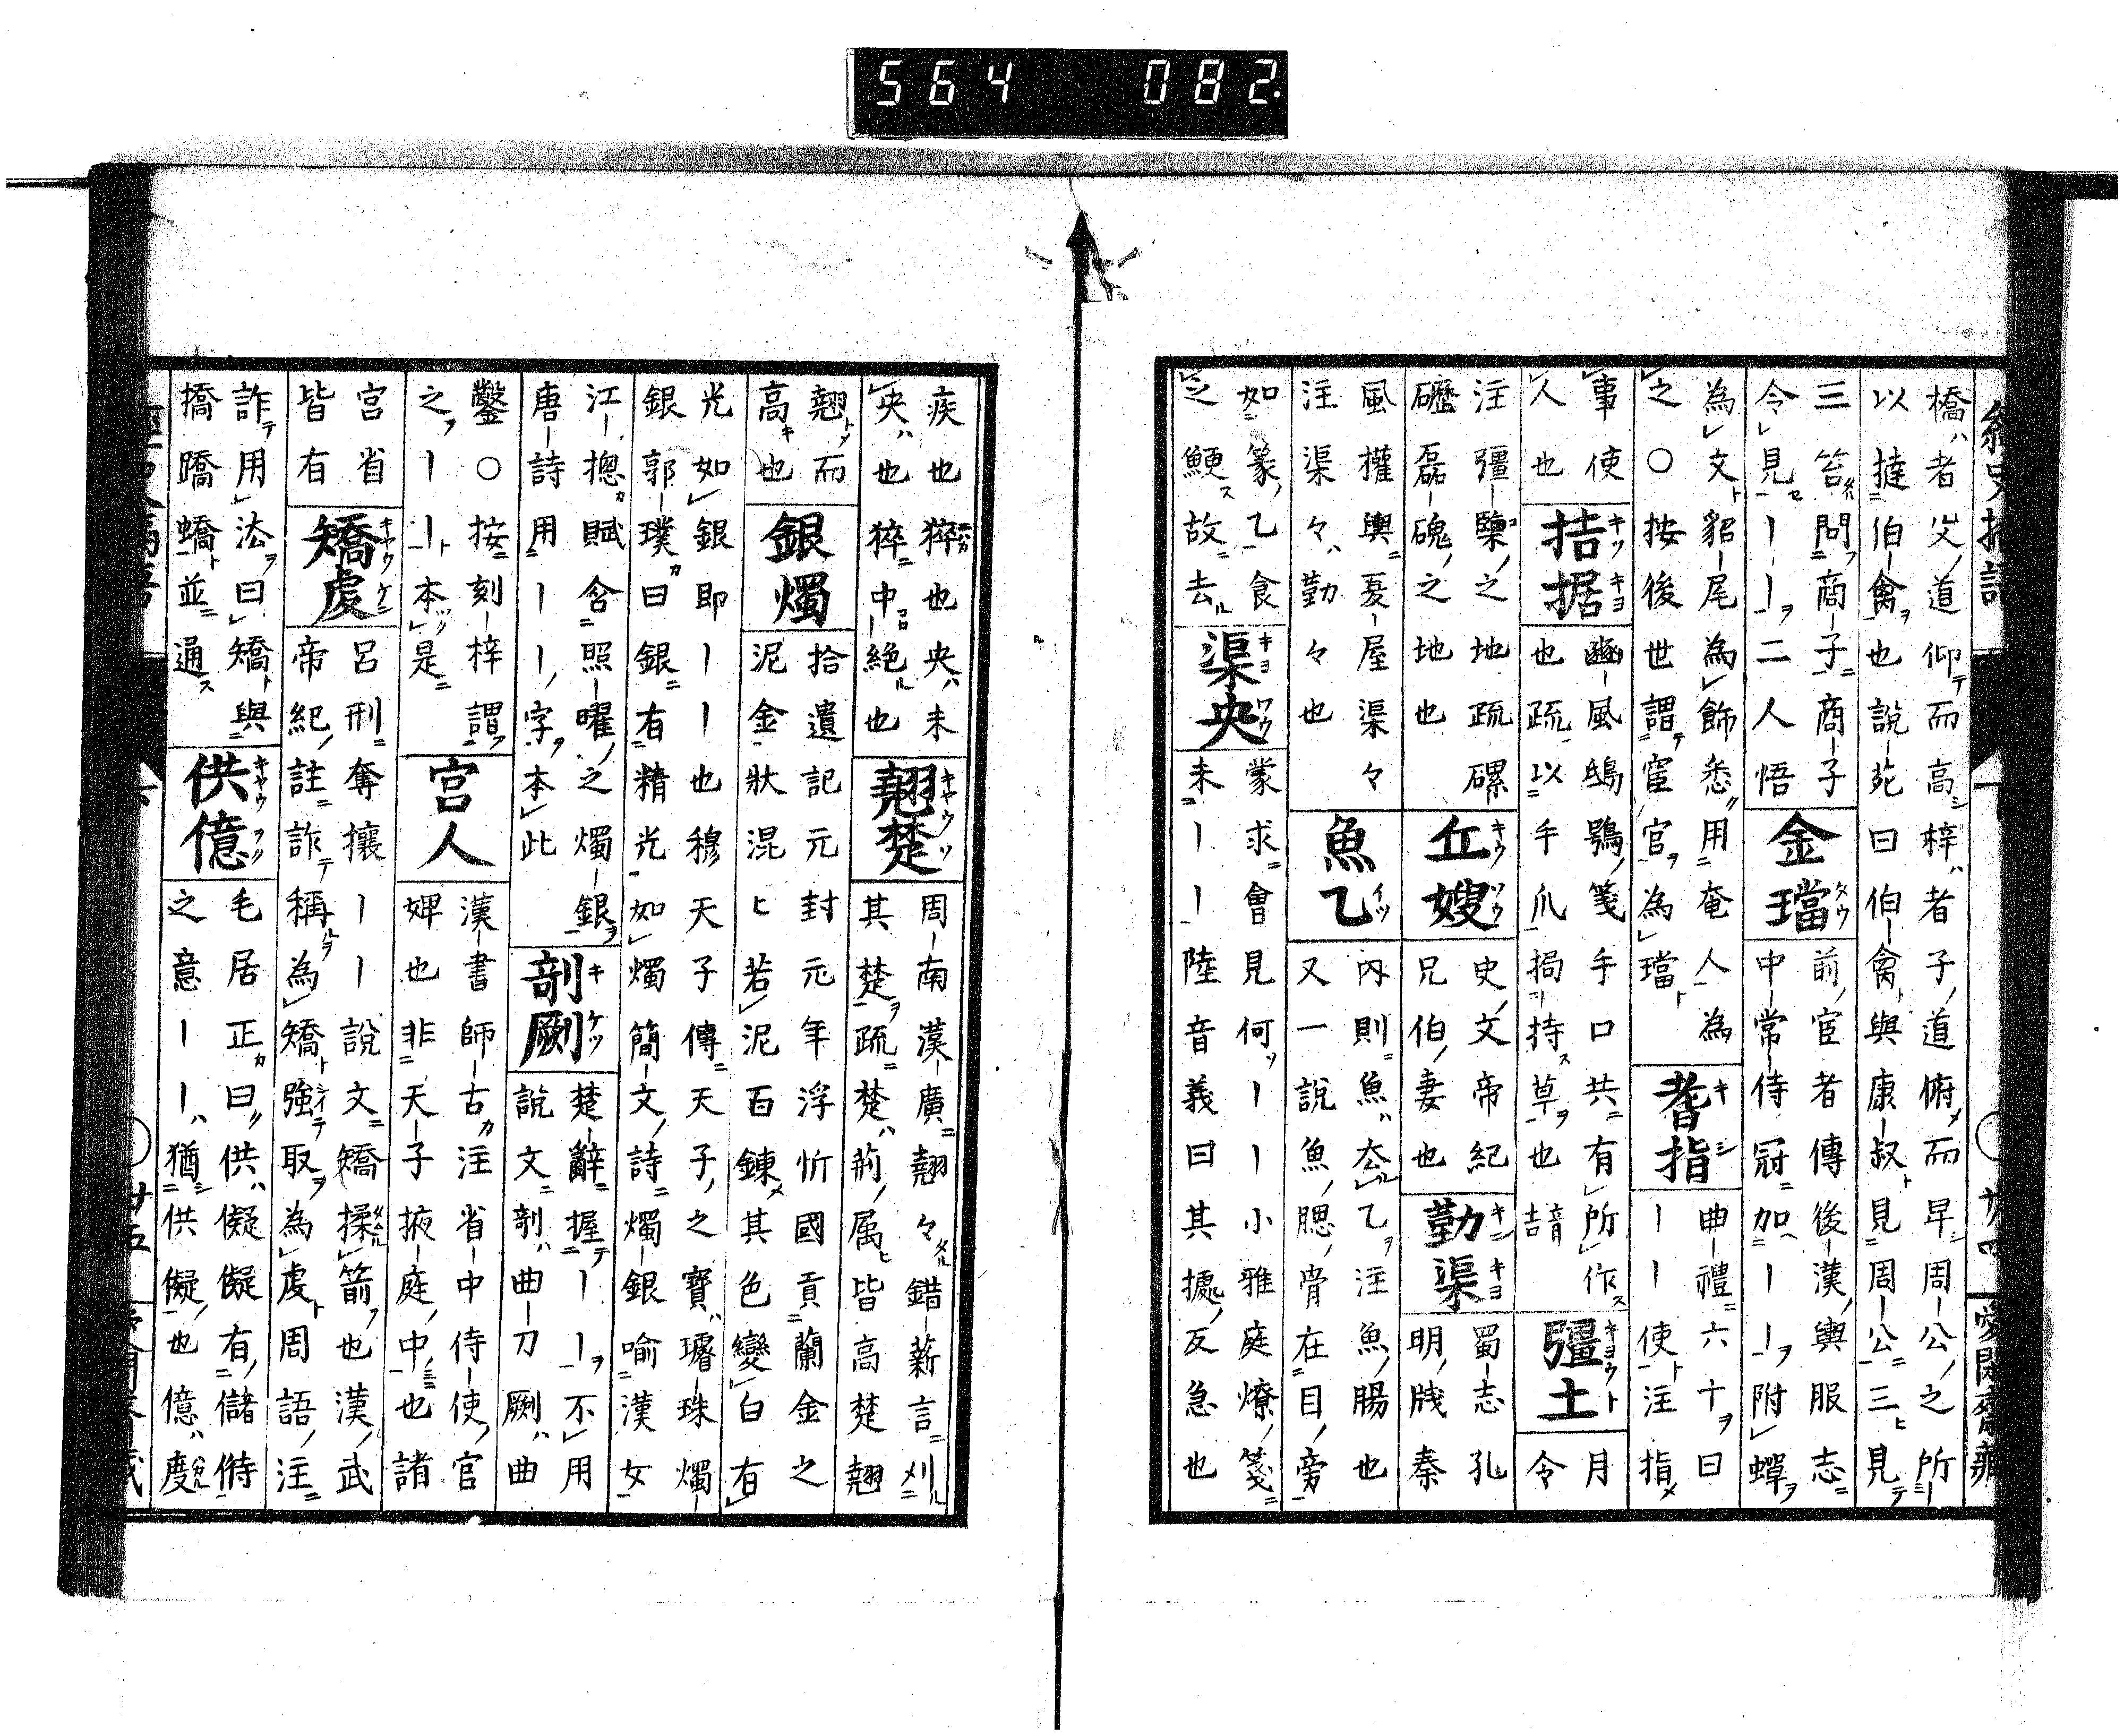 564 082
橋者父道仰而高梓者子道俯而早周公之所
以撻伯禽也說苑曰伯禽與康叔見周公三見
三笞問商子商子
令見丨丨二人悟
金璫
前宦者傳後漢輿服志
中常侍冠加丨丨附蟬
為文貂尾為飾悉用奄人為
之○按後世謂宦官為璫
耆指
曲禮六十曰
丨丨使注指
事使
人也
拮据
豳風鴟鴞箋手口共有所作
也疏以手爪挶持草也
彊土
月
令
注彊㯺之地疏磥
礰磊磈之地也
丘嫂
史文帝紀
兄伯妻也
勤渠
蜀志孔
明牋秦
風權輿夏屋渠々
注渠々勤々也
魚乙
內則魚厺乙注魚腸也
又一說魚腮骨在目旁
如篆乙食
之鯁故去
渠央
蒙求會見何丨丨小雅庭燎箋
未丨丨陸音義曰其據反急也
疾也猝也央未
央也猝中絕也
翹楚
周南漢廣翹々錯薪言刈
其楚疏楚荊属皆高楚翹
翹而
高也
銀燭
拾遺記元封元年浮忻國貢蘭金之
泥金狀混匕若泥百鍊其色變白有
光如銀即丨丨也穆天子傳天子之寶璿珠燭
銀郭璞曰銀有精光如燭簡文詩燭銀喻漢女
江揔賦含照曜之燭銀
唐詩用丨丨字本此
剞劂
楚辭握丨丨不用
說文剞曲刀劂曲
鑿○按刻梓謂
之丨丨本是
宮人
漢書師古注省中侍使官
婢也非天子掖庭中也諸
宮省
皆有
矯虔
呂刑奪攘丨丨說文矯揉箭也漢武
帝紀註詐稱為矯強取為虔周語注
詐用法曰矯與
撟蹻蟜並通
供億
毛居正曰供儗儗有儲偫
之意丨丨猶供儗也億度